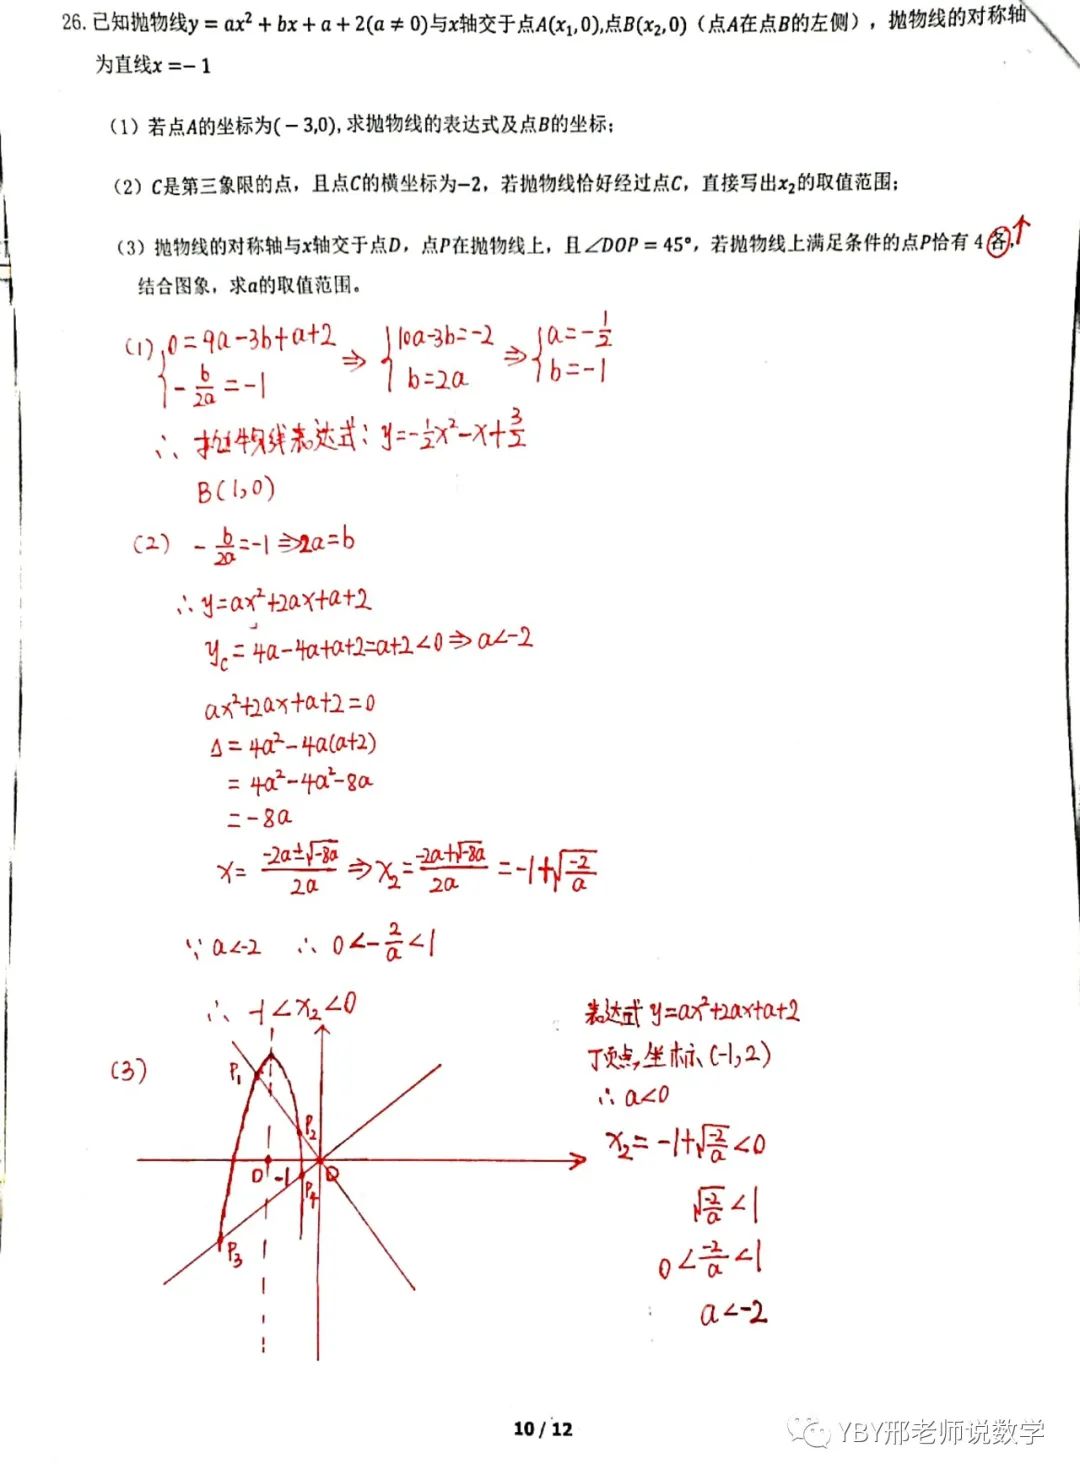 26. 已知抛物线y = ax² + bx + a + 2(a ≠ 0)与x轴交于点A(x₁,0),点B(x₂,0)（点A在点B的左侧），抛物线的对称轴
为直线x =− 1
（1）若点A的坐标为(− 3,0), 求抛物线的表达式及点B的坐标；
（2）C是第三象限的点，且点C的横坐标为−2，若抛物线恰好经过点C，直接写出x₂的取值范围；
（3）抛物线的对称轴与x轴交于点D，点P在抛物线上，且∠DOP = 45°，若抛物线上满足条件的点P恰有 4 各，
结合图象，求a的取值范围。
(1) { 0=9a-3b+a+2 ⇒ { 10a-3b=-2 ⇒ { a=-1/2
-b/2a=-1 b=2a b=-1
∴ 抛物线表达式: y=-1/2x²-x+3/2
B(1,0)
(2) -b/2a=-1⇒2a=b
∴y=ax²+2ax+a+2
y_C=4a-4a+a+2=a+2<0⇒a<-2
ax²+2ax+a+2=0
Δ=4a²-4a(a+2)
=4a²-4a²-8a
=-8a
x=(-2a±√-8a)/2a ⇒ x₂=(-2a+√-8a)/2a=-1+√(-2/a)
∵ a<-2 ∴ 0<-2/a<1
∴ -1<x₂<0
(3)
P₁
P₂
D -1 O
P₄
P₃
表达式 y=ax²+2ax+a+2
顶点坐标(-1,2)
∴ a<0
x₂=-1+√(-2/a)<0
√(-2/a)<1
0<-2/a<1
a<-2
10 / 12
YBY邢老师说数学